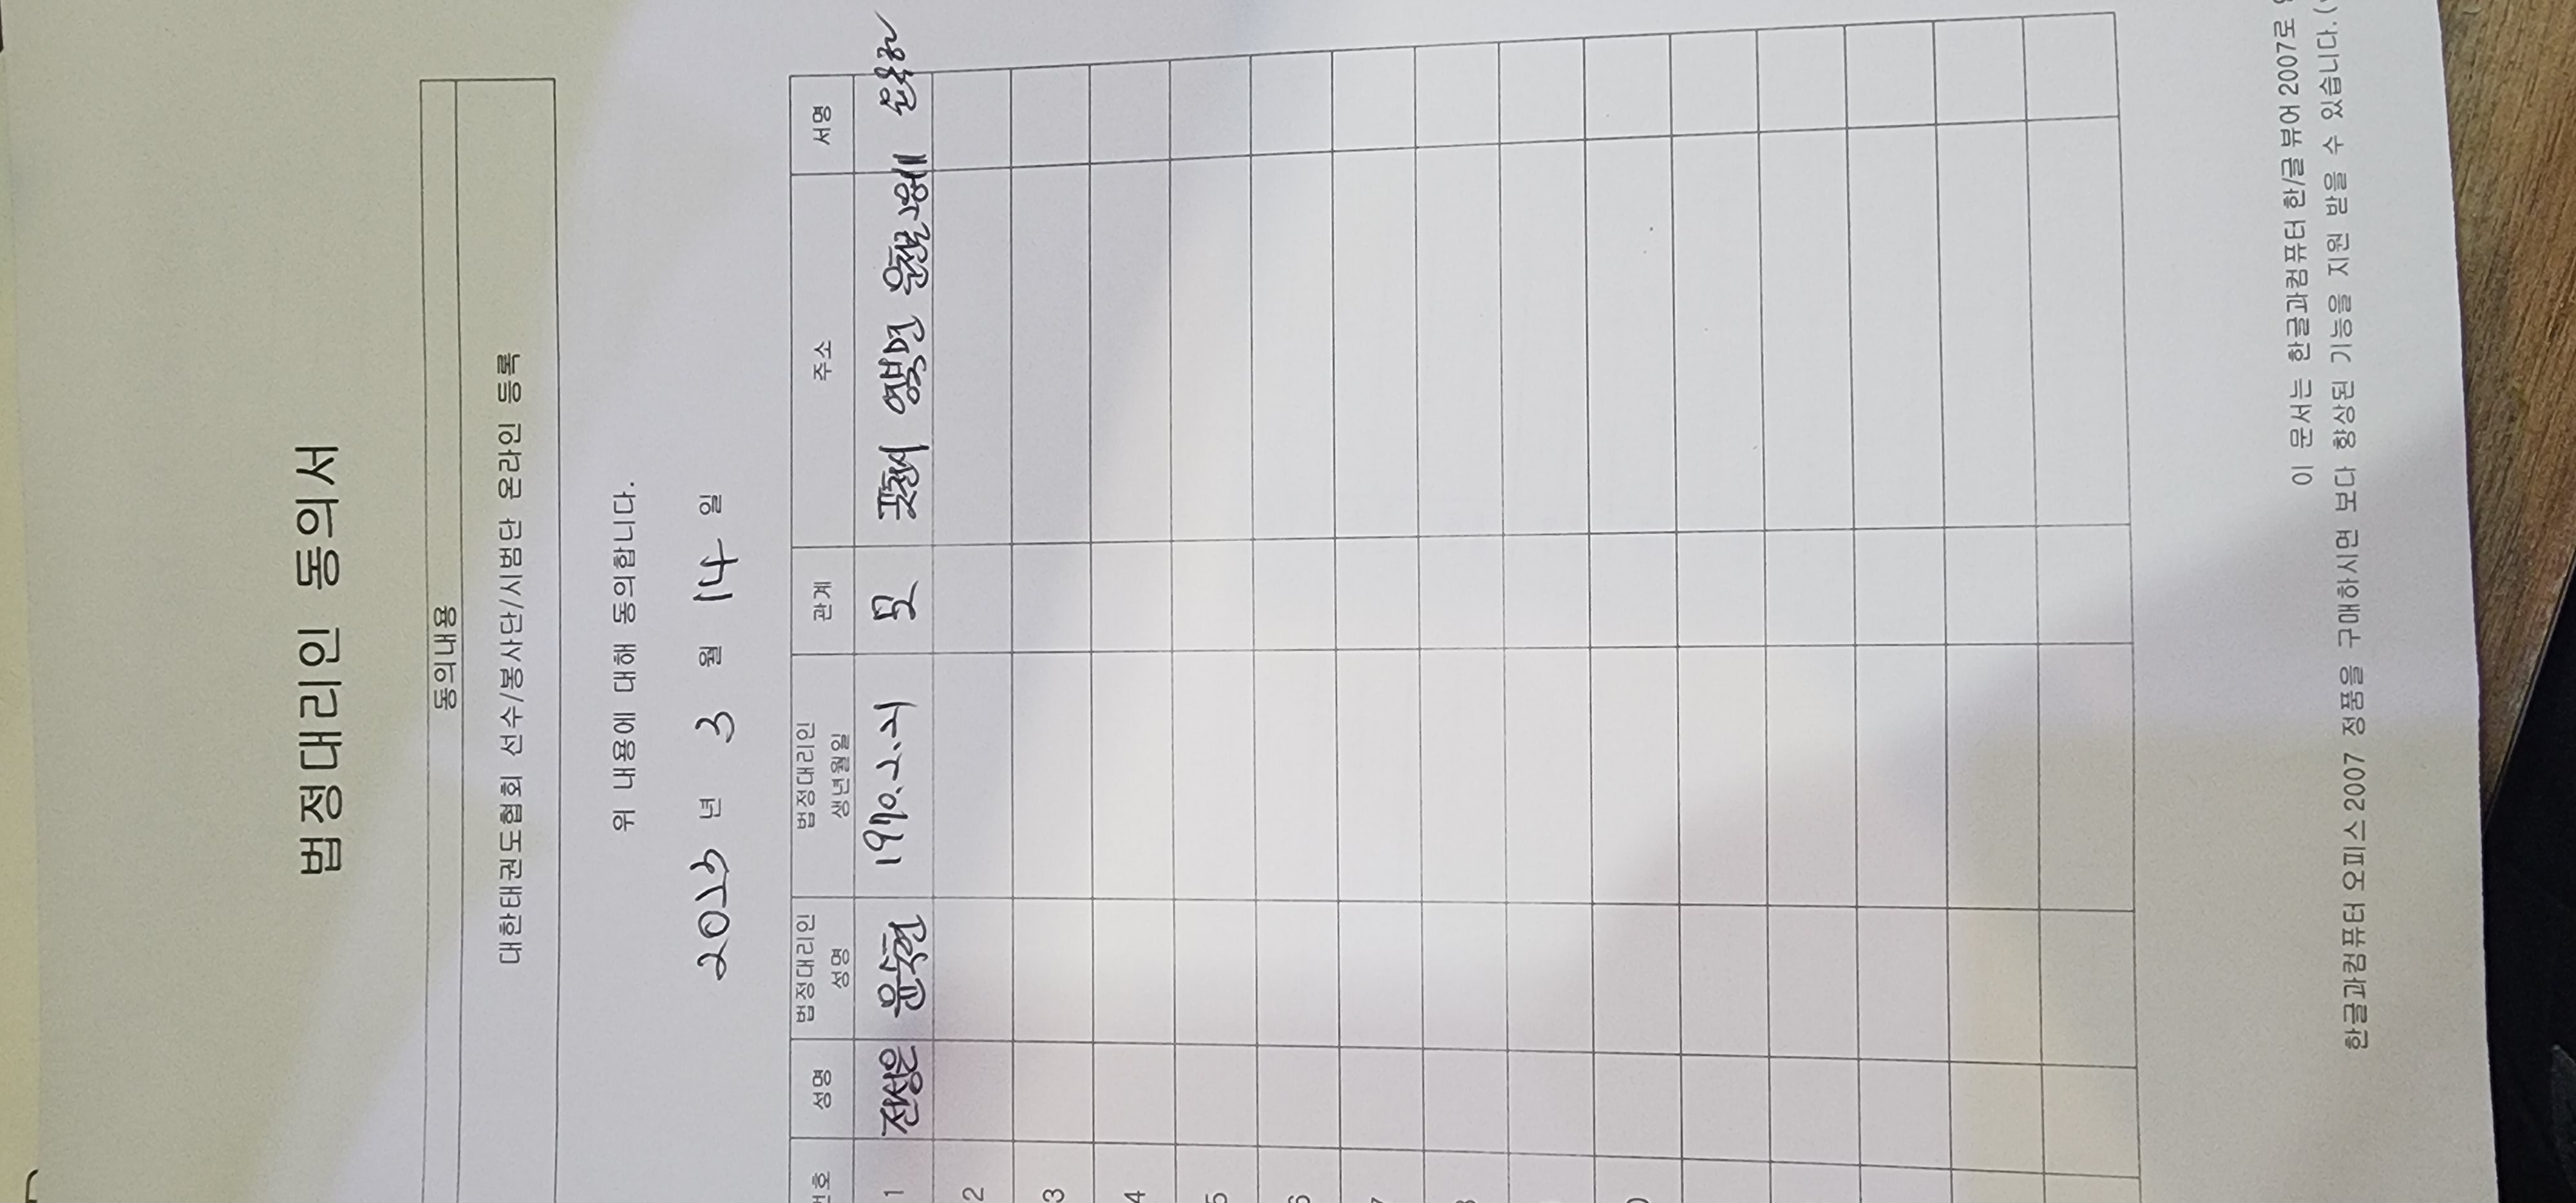 법정대리인 동의서
동의내용
대한태권도협회 선수/봉사단/시범단 온라인 등록
위 내용에 대해 동의합니다.
2023 년 3 월 14 일
성명 법정대리인 성명 법정대리인 생년월일 관계 주소 서명
1 전성은 윤수현 1970.2.21 모 포천시 영북면
2
3
4
5
6
이 문서는 한글과컴퓨터 한/글 뷰어 2007로
한글과컴퓨터 오피스 2007 정품을 구매하시면 보다 향상된 기능을 지원 받을 수 있습니다.(